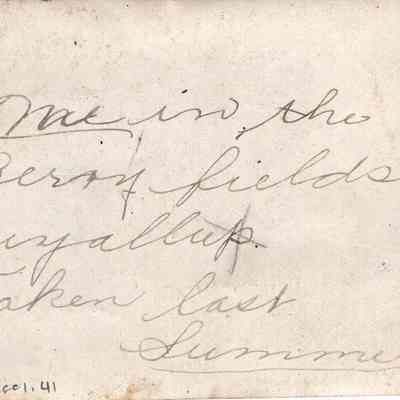 Mae in the
Berry fields
uyallup.
Taken last
Summe
001.41